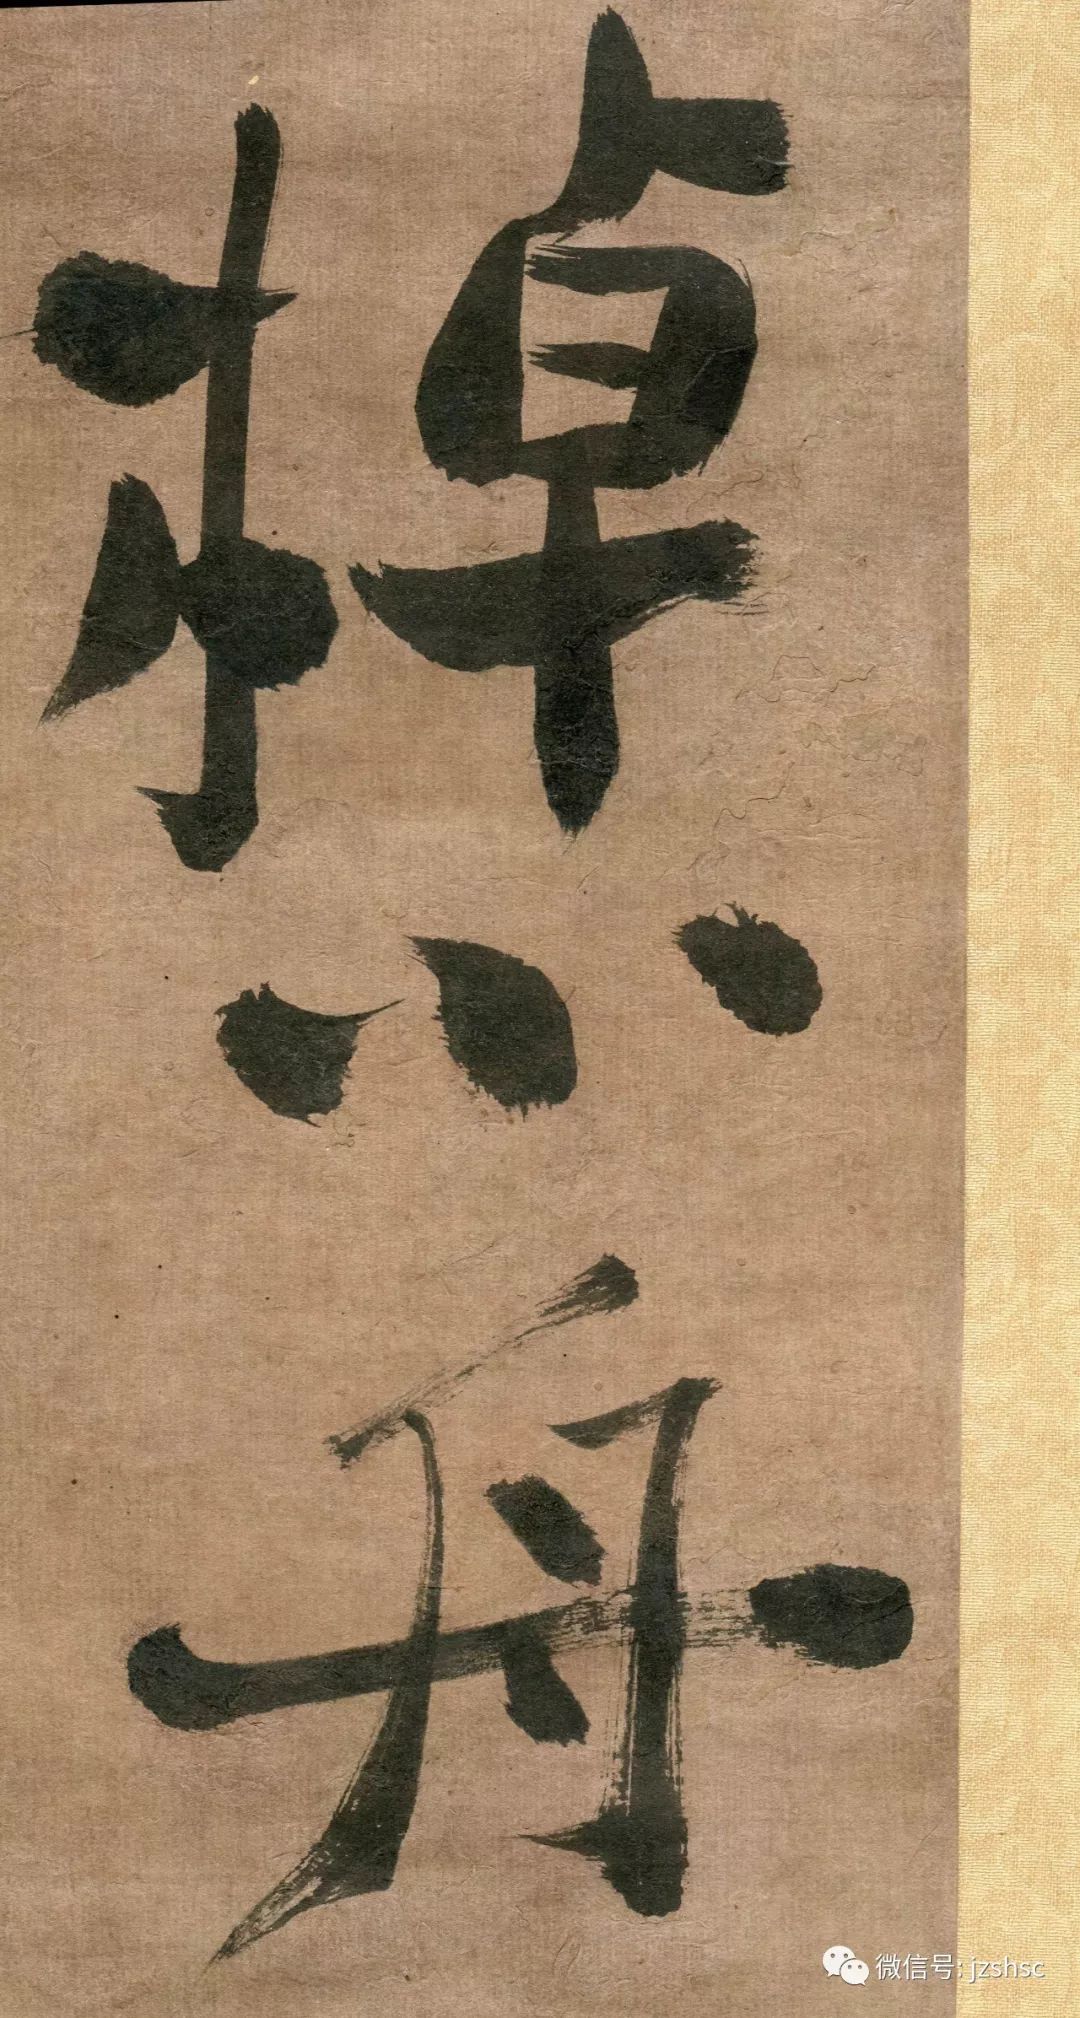 棹小舟
微信号: jzshsc